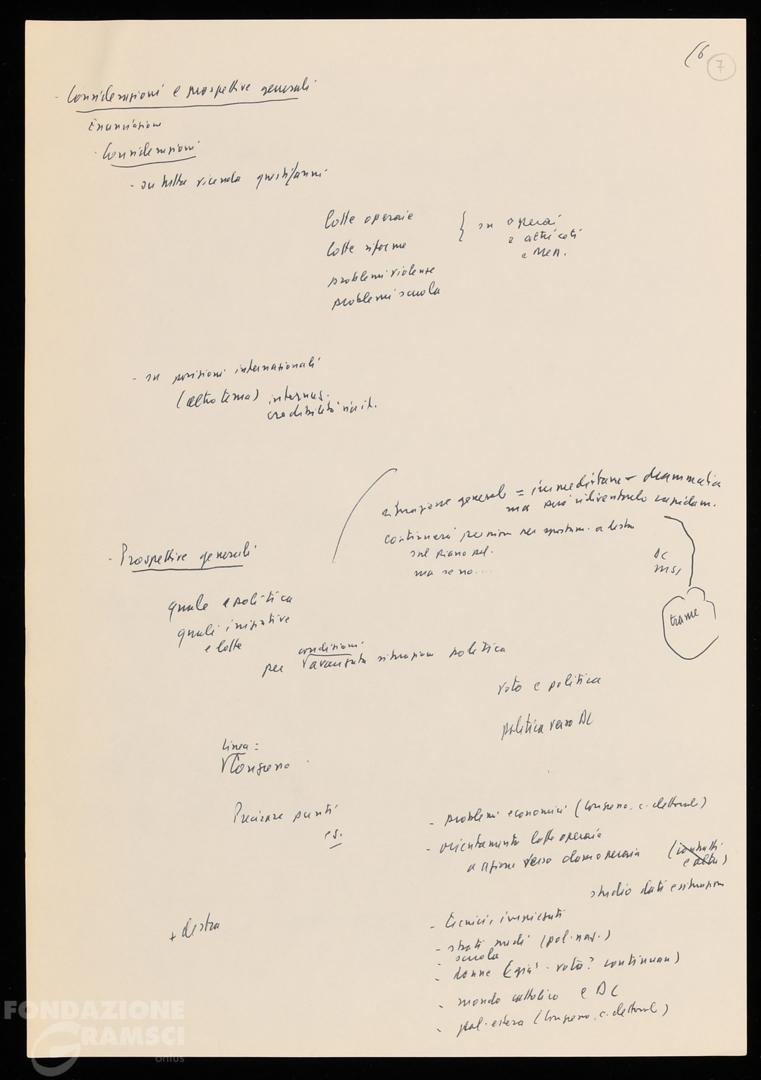 (6 7
- Considerazioni e prospettive generali
Enunciazione
- Considerazioni
- su tutta vicenda questi/anni
lotte operaie
lotte riforme
problemi violenze
problemi scuola
{ su operai
e altri ceti
e Mer.
- su posizioni internazionali
(altro tema) internaz.
credibilità
situazione generale = immediatam. drammatica
ma può ridiventarlo rapidam.
continuerà
sul piano
ma se no....
DC
MSI
trame
- Prospettive generali
quale politica
quali iniziative
e lotte
condizioni
per avanzata situazione politica
voto e politica
politica verso DC
linea =
Congresso
Precisare punti
es.
- problemi economici (Congresso, c. elettorale)
- orientamento lotte operaie
azione verso classe operaia (contratti
e altro)
studio dati e situazioni
+ destra
- tecnici, impiegati
- strati medi (pol. naz.)
- scuola
- donne (già voto? continuare)
- mondo cattolico e DC
- pol. estera (Congresso, c. elettorale)
FONDAZIONE
GRAMSCI
onlus